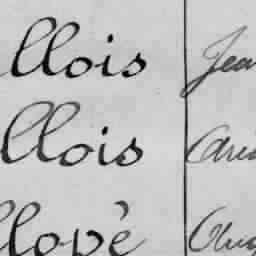 llois Jea
llois Aris
llopé Aug